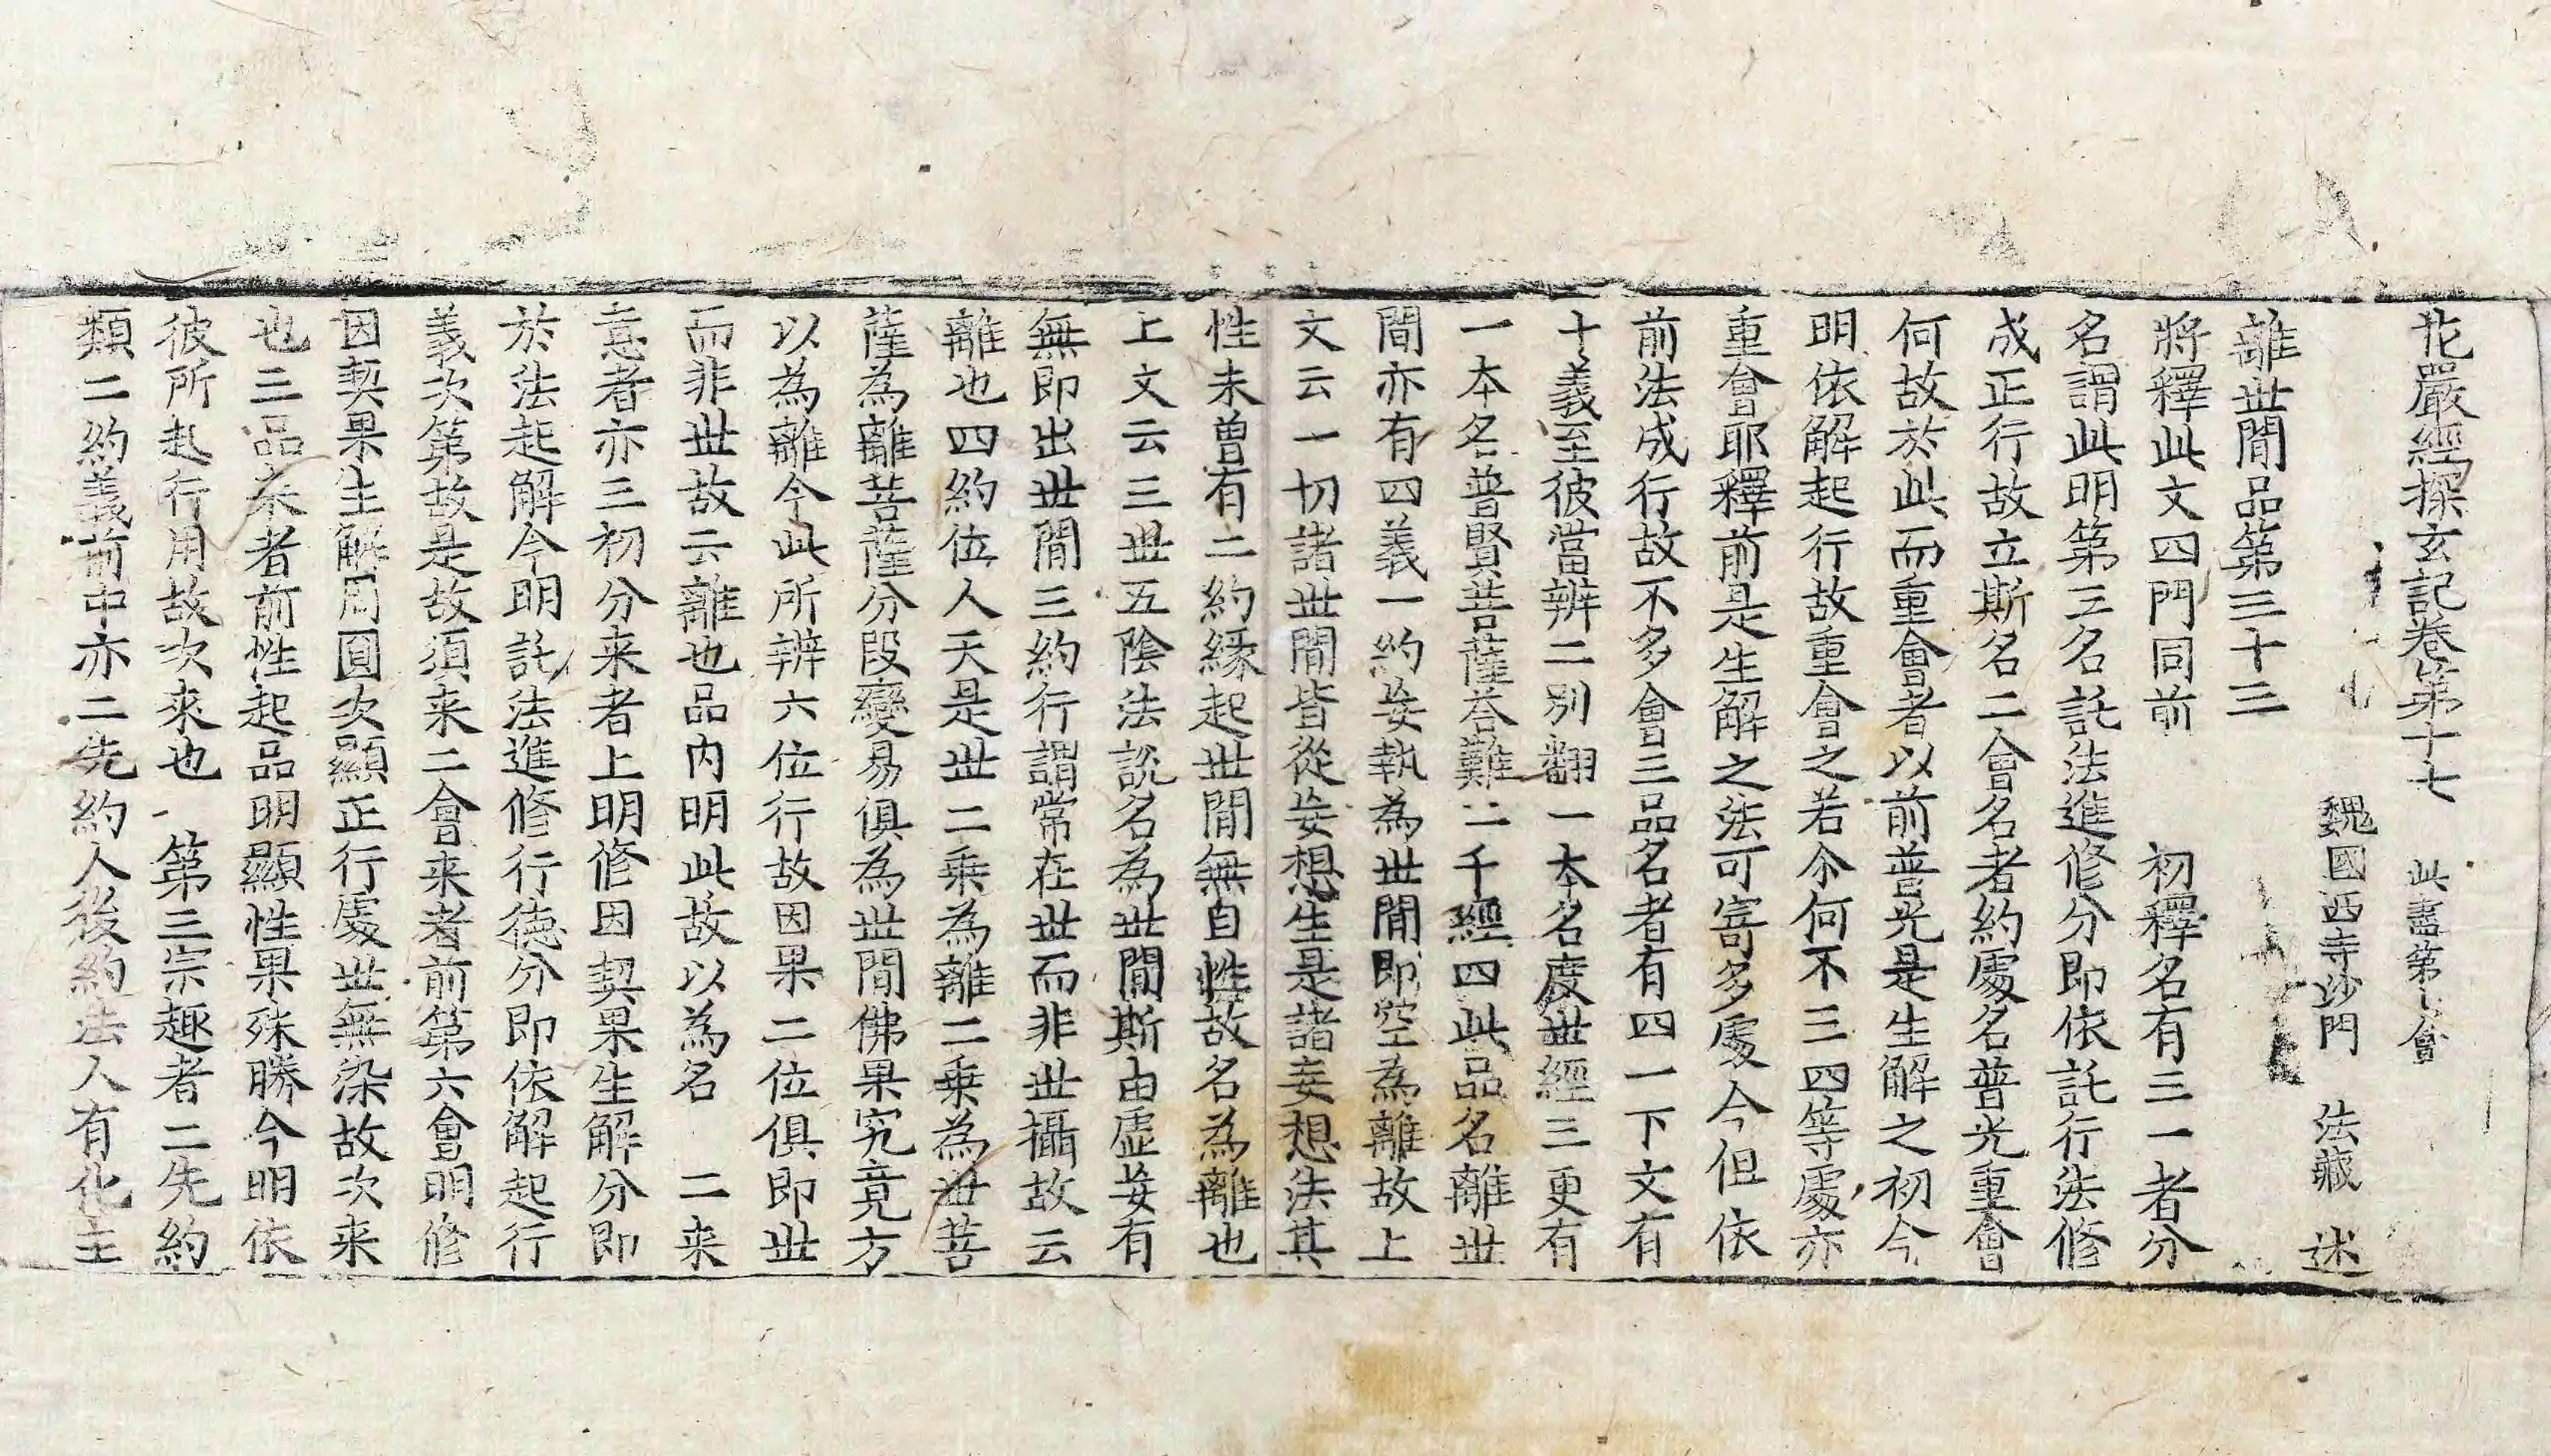 花嚴經探玄記卷第十七 此盡第七會
魏國西寺沙門 法藏 述
離世間品第三十三
將釋此文四門同前 初釋名有三一者分
名謂此明第三名託法進修分即依託行法修
成正行故立斯名二會名者約處名普光重會
何故於此而重會者以前普光是生解之初今
明依解起行故重會之若尒何不三四等處亦
重會耶釋前是生解之法可寄多處今但依
前法成行故不多會三品名者有四一下文有
十義至彼當辨二別翻一本名度世經三更有
一本名普賢菩薩荅難二千經四此品名離世
間亦有四義一約妄執為世間即空為離故上
文云一切諸世間皆從妄想生是諸妄想法其
性未曾有二約緣起世間無自性故名為離也
上文云三世五陰法說名為世間斯由虛妄有
無即出世間三約行謂常在世而非世攝故云
離也四約位人天是世二乘為離二乗為世菩
薩為離菩薩分段變易俱為世間佛果究竟方
以為離今此所辨六位行故因果二位俱即世
而非世故云離也品内明此故以為名 二来
意者亦三初分来者上明修因契果生解分即
於法起解今明託法進修行德分即依解起行
義次第故是故須来二會来者前第六會明修
因契果生解周圓次顯正行處世無染故次来
也三品来者前性起品明顯性果殊勝今明依
彼所起行用故次來也 第三宗趣者二先約
類二約義前中亦二先約人後約法人有化主